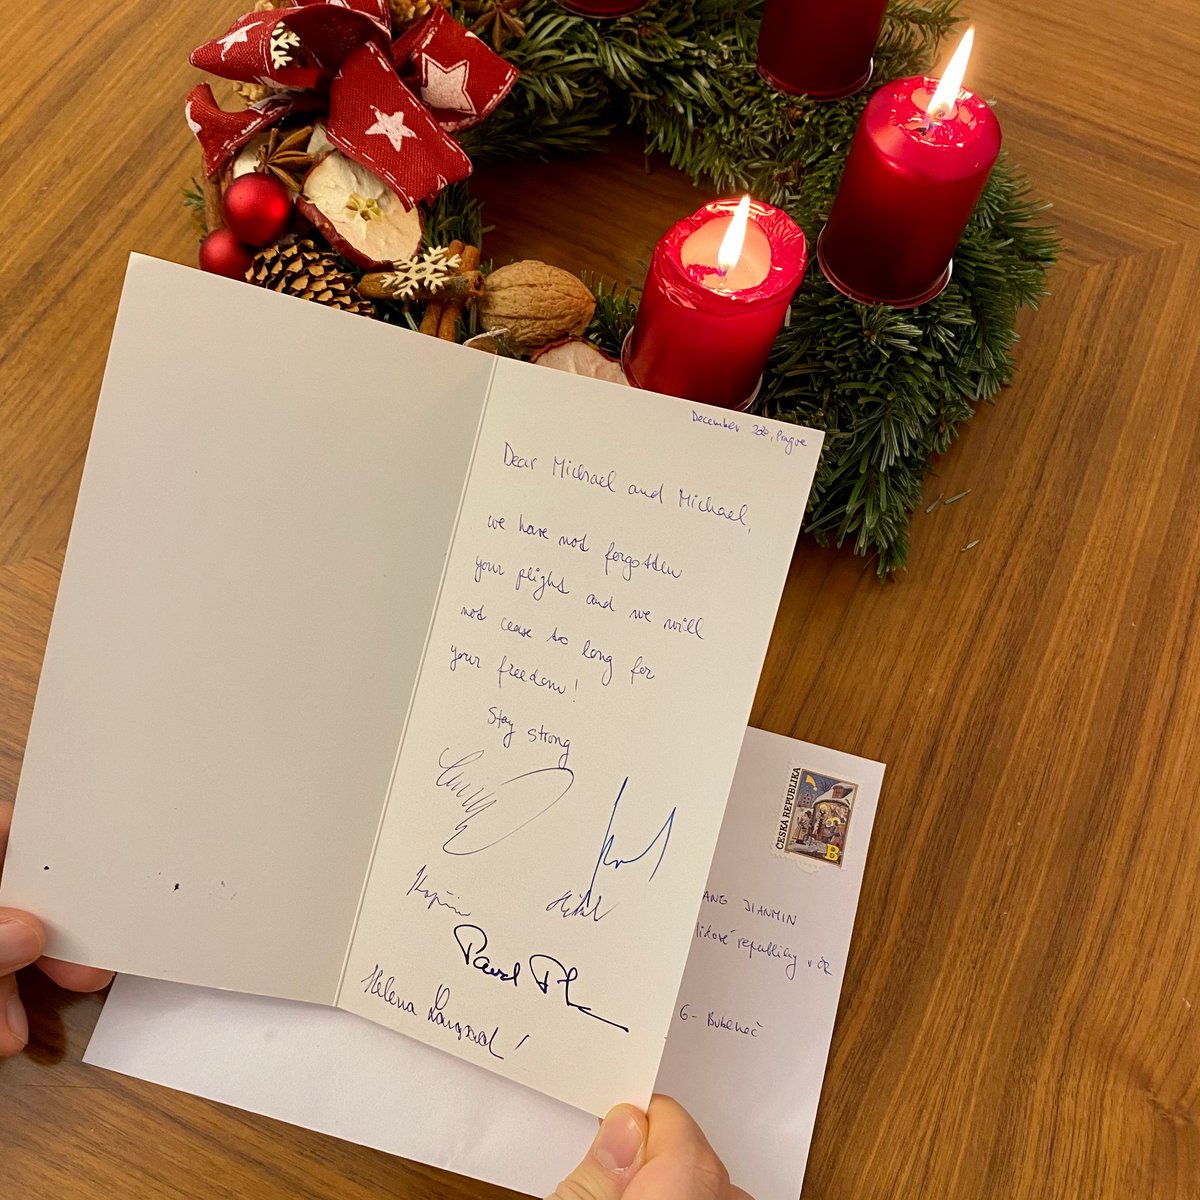 December 2020, Prague
Dear Michael and Michael,
we have not forgotten
your plight and we will
not cease to long for
your freedom!
Stay strong
Pavel
Helena Langšádl
ČESKÁ REPUBLIKA
B
ANG JIANMIN
lidové republiky v ČR
6 - Bubeneč